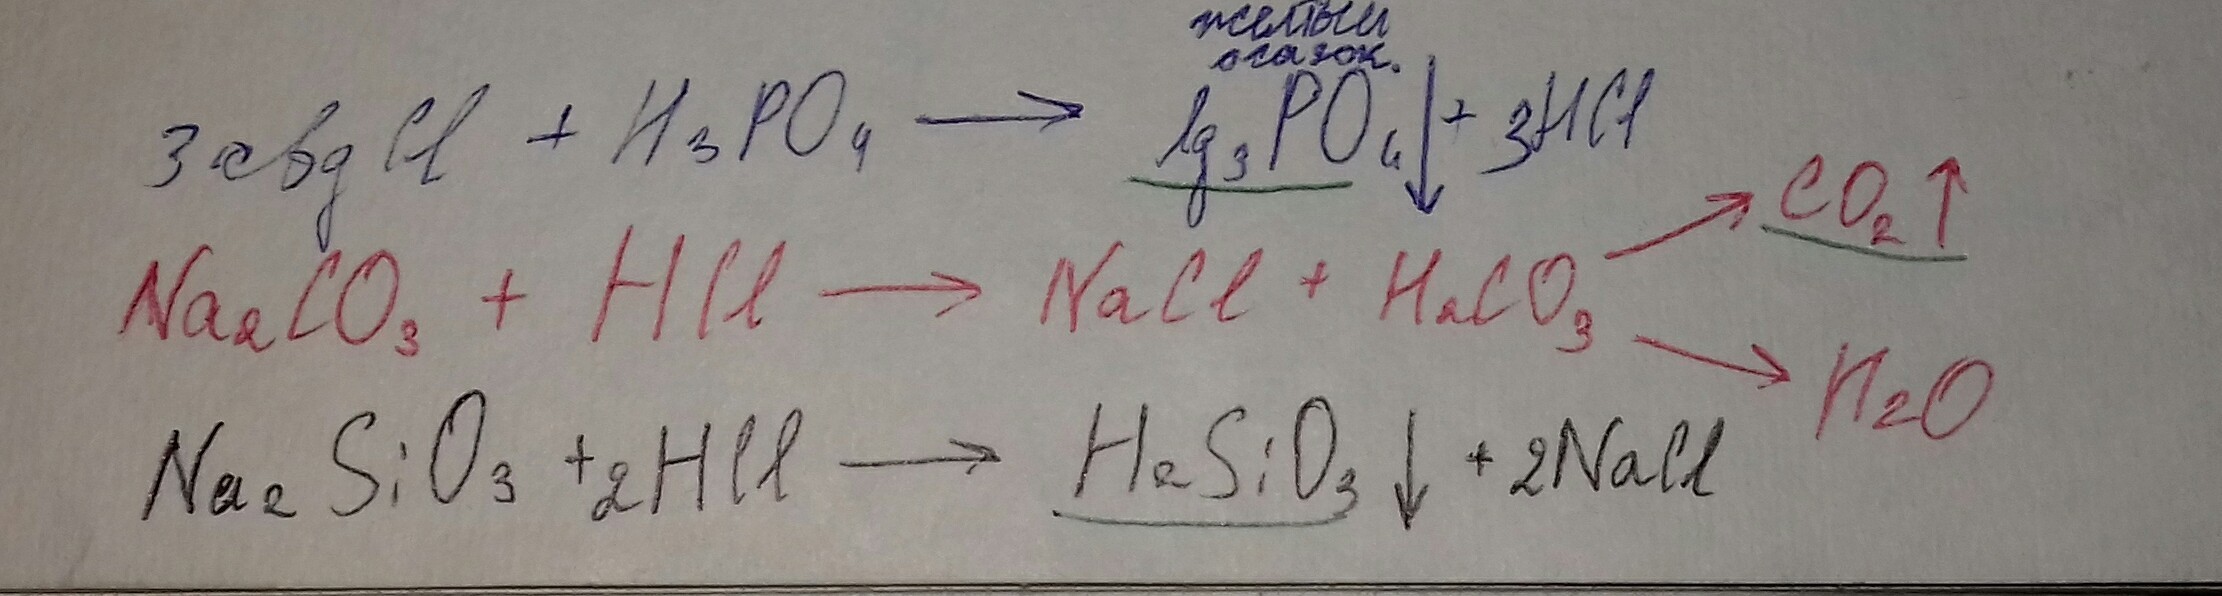 желтый
осадок.
3 AgCl + H₃PO₄ → Ag₃PO₄↓ + 3HCl
Na₂CO₃ + HCl → NaCl + H₂CO₃ → CO₂↑
→ H₂O
Na₂SiO₃ + 2HCl → H₂SiO₃↓ + 2NaCl